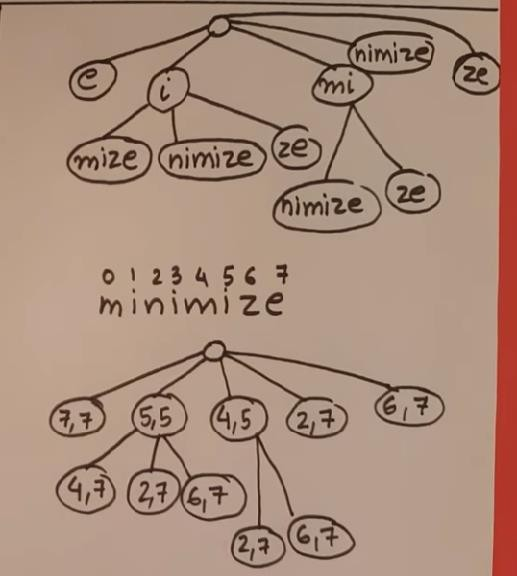 e i mi nimize ze
mize nimize ze nimize ze
0 1 2 3 4 5 6 7
minimize
7,7 5,5 4,5 2,7 6,7
4,7 2,7 6,7 2,7 6,7